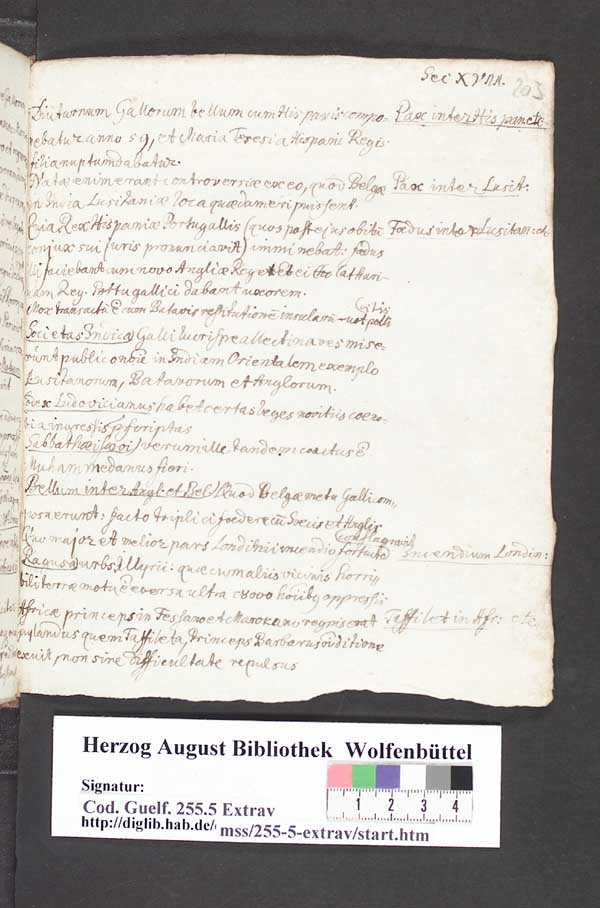 Sec XVII.
203
Diuturnum Gallorum bellum cum Hispanis compo- Pax inter Hisp: et
nebatur anno 59, et Maria Teresia Hispani Regis
filia nuptum dabatur.
Natae enim erant controversiae ex eo, quod Belgae Pax inter Lusit:
in India Lusitaniae loca quaedam eripuissent.
Quia Rex Hispaniae Portugallis (quos post ejus obiti Foedus inter Lusitan: et
conjux sui juris pronunciavit) imminebat: foedus
illi faciebant cum novo Angliae Rege et ei Cathari-
nam Reg. Portugallici dabant uxorem.
Mox transactu ē cum Batavis restitutione insularū
Societas Indica) Galli lucri spe allecti naves mise-
runt publico nomine in Indiam Orientalem exemplo
Lusitanorum, Batavorum et Anglorum.
Ludovicianus habet certas leges novitiis coeno-
bia ingressis pscriptas
Sabbathaei verum ille tandem coactus ē
Muhammedanus fieri.
Bellum inter Angl: et Bel) Quod Belgae metu Gall: com-
posuerunt: facto triplici foedere cū Suecis et Anglis
conflagravit
Quo major et melior pars Londini incendio fortuito Incendium Londin:
Ragusa urbs Illyrii: quae cum aliis vicinis horri-
bili terrae motu ē eversa ultra hoibus oppressis
Africae princeps in Fessano et Marocano regno erat Taffilet in Afr: etc
Gaylandus quem Taffileta, Princeps Barbarus ditione
exuit, non sine difficultate repulsus
Herzog August Bibliothek Wolfenbüttel
Signatur:
Cod. Guelf. 255.5 Extrav
http://diglib.hab.de/ mss/255-5-extrav/start.htm
1 2 3 4